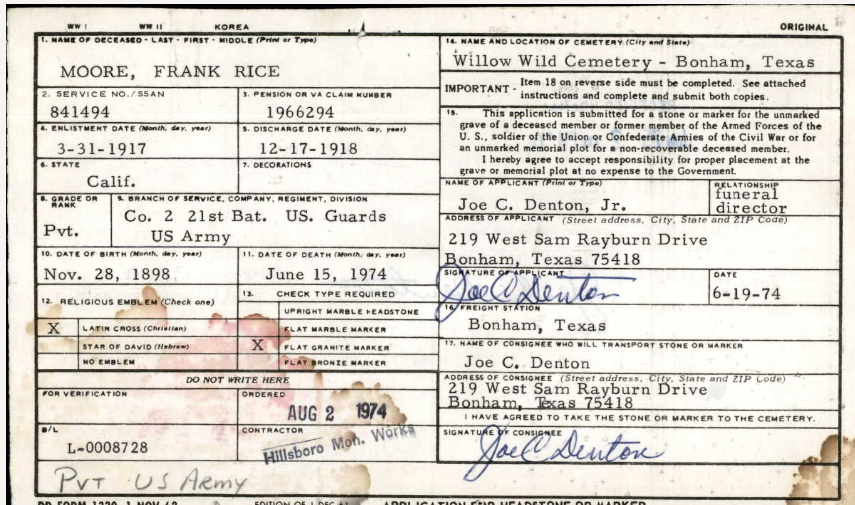 WW I WW II KOREA ORIGINAL
1. NAME OF DECEASED - LAST - FIRST - MIDDLE (Print or Type)
MOORE, FRANK RICE
2. SERVICE NO./SSAN
841494
3. PENSION OR VA CLAIM NUMBER
1966294
4. ENLISTMENT DATE (Month, day, year)
3-31-1917
5. DISCHARGE DATE (Month, day, year)
12-17-1918
6. STATE
Calif.
7. DECORATIONS
8. GRADE OR RANK
Pvt.
9. BRANCH OF SERVICE, COMPANY, REGIMENT, DIVISION
Co. 2 21st Bat. US. Guards
US Army
10. DATE OF BIRTH (Month, day, year)
Nov. 28, 1898
11. DATE OF DEATH (Month, day, year)
June 15, 1974
12. RELIGIOUS EMBLEM (Check one)
X LATIN CROSS (Christian)
STAR OF DAVID (Hebrew)
NO EMBLEM
13. CHECK TYPE REQUIRED
UPRIGHT MARBLE HEADSTONE
FLAT MARBLE MARKER
X FLAT GRANITE MARKER
FLAT BRONZE MARKER
DO NOT WRITE HERE
FOR VERIFICATION
ORDERED
AUG 2 1974
B/L
L-0008728
CONTRACTOR
Hillsboro Mon. Works
PVT US Army
14. NAME AND LOCATION OF CEMETERY (City and State)
Willow Wild Cemetery - Bonham, Texas
IMPORTANT - Item 18 on reverse side must be completed. See attached
instructions and complete and submit both copies.
15. This application is submitted for a stone or marker for the unmarked
grave of a deceased member or former member of the Armed Forces of the
U. S., soldier of the Union or Confederate Armies of the Civil War or for
an unmarked memorial plot for a non-recoverable deceased member.
I hereby agree to accept responsibility for proper placement at the
grave or memorial plot at no expense to the Government.
NAME OF APPLICANT (Print or Type)
Joe C. Denton, Jr.
RELATIONSHIP
funeral
director
ADDRESS OF APPLICANT (Street address, City, State and ZIP Code)
219 West Sam Rayburn Drive
Bonham, Texas 75418
SIGNATURE OF APPLICANT
Joe C Denton
DATE
6-19-74
16. FREIGHT STATION
Bonham, Texas
17. NAME OF CONSIGNEE WHO WILL TRANSPORT STONE OR MARKER
Joe C. Denton
ADDRESS OF CONSIGNEE (Street address, City, State and ZIP Code)
219 West Sam Rayburn Drive
Bonham, Texas 75418
I HAVE AGREED TO TAKE THE STONE OR MARKER TO THE CEMETERY.
SIGNATURE OF CONSIGNEE
Joe C Denton
APPLICATION FOR HEADSTONE OR MARKER